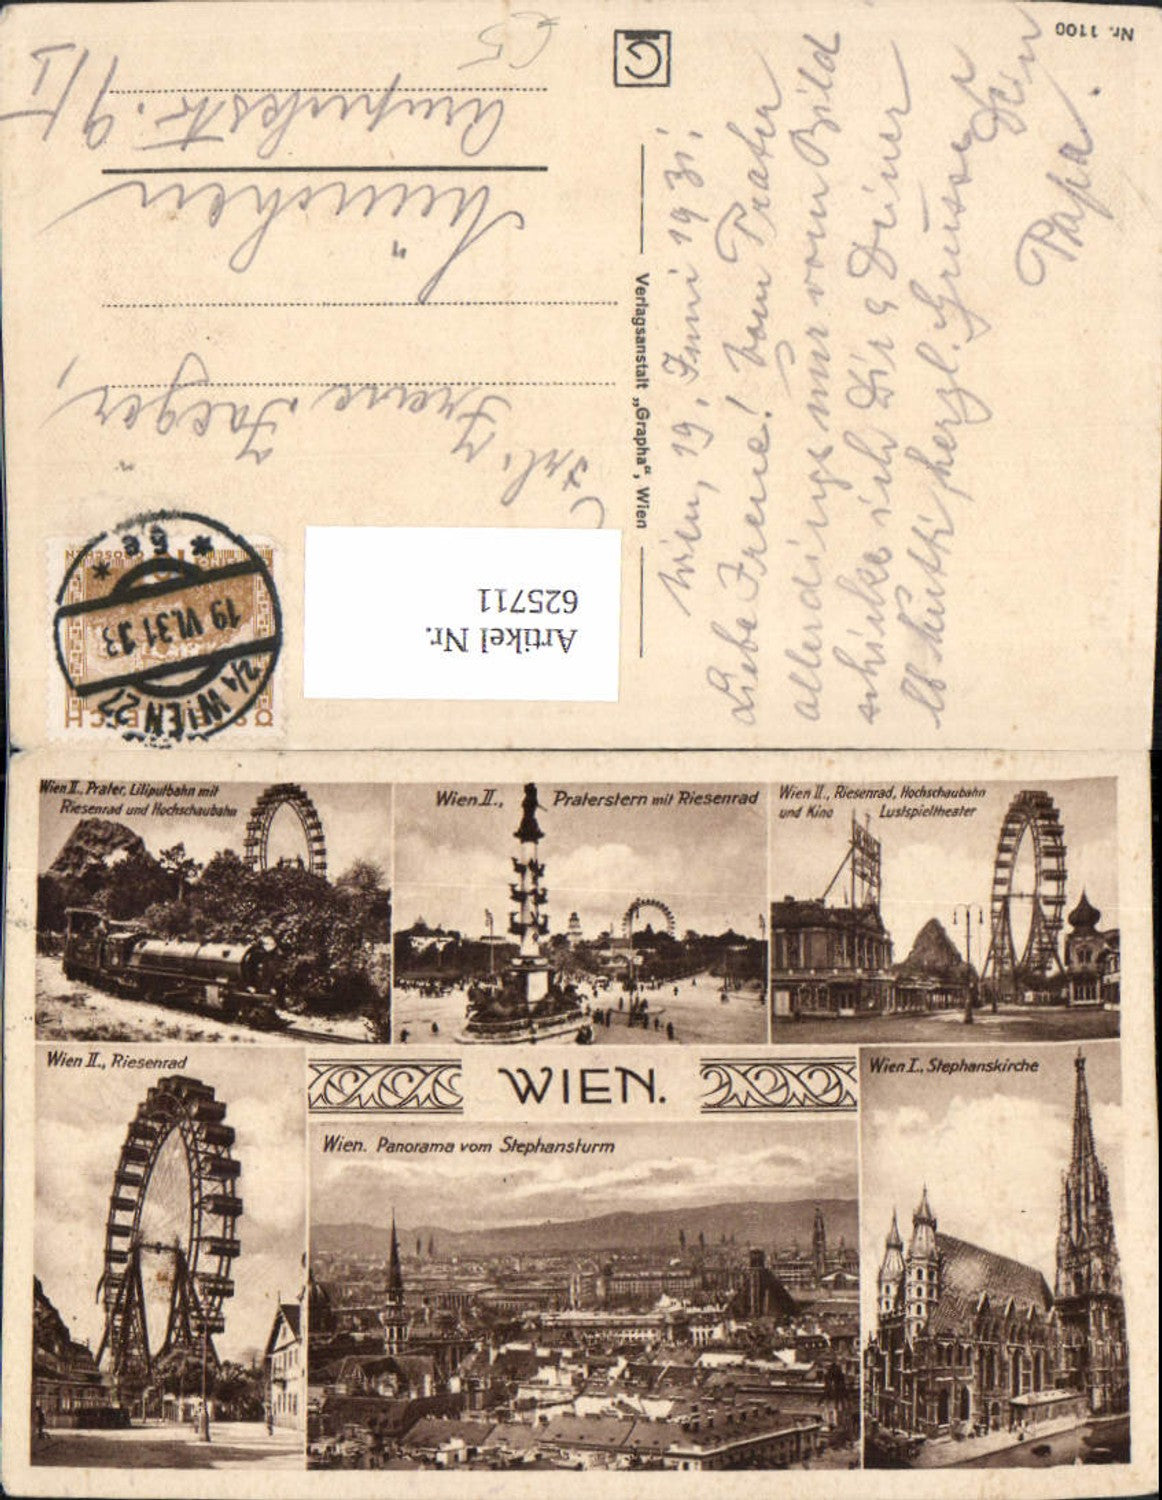 Nr. 1100
G
Verlagsanstalt „Grapha“, Wien
Wien, 19. Juni 1931.
Liebe Irene! Vom Prater
allerdings nur vom Bild
schicke ich Dir & Deiner
lb Mutti herzl. Grüsse
Dein
Papa.
Frl.
Irene Jaeger,
München
9/I
65
Artikel Nr.
625711
ÖSTERREICH
GROSCHEN
2/4 WIEN 27
19 VI.31.13
* 5e *
Wien II., Prater, Liliputbahn mit
Riesenrad und Hochschaubahn
Wien II., Praterstern mit Riesenrad
Wien II., Riesenrad, Hochschaubahn
und Kino Lustspieltheater
Wien II., Riesenrad
WIEN.
Wien I., Stephanskirche
Wien. Panorama vom Stephansturm